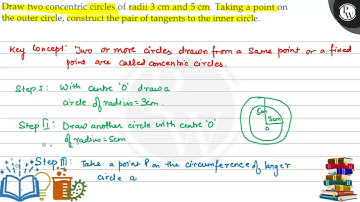 Draw two concentric circles of radii 3 cm and 5 cm. Taking a point on
the outer circle, construct the pair of tangents to the inner circle.
Key Concept: Two or more circles drawn from a same point or a fixed
point are called concentric circles.
Step I: With centre 'O' draw a
circle of radius = 3cm.
Step II: Draw another circle with centre 'O'
of radius = 5cm
Step III: Take a point P on the circumference of larger
circle a
5cm
3cm
O